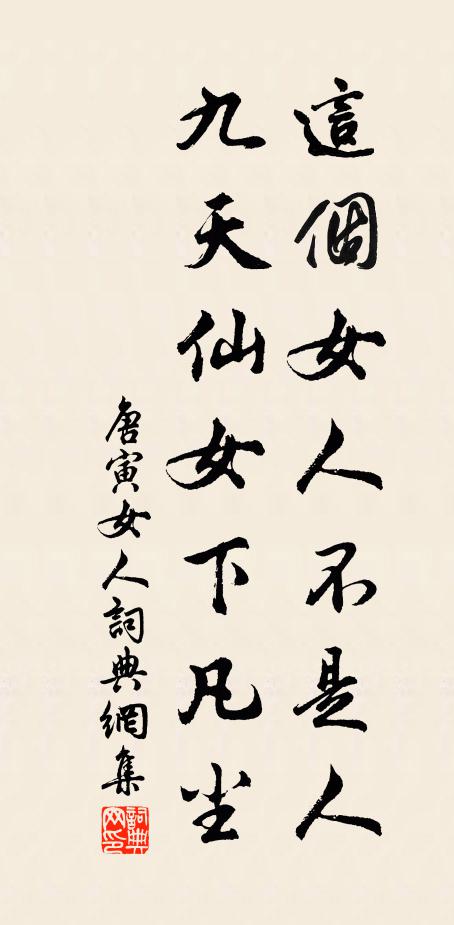 這個女人不是人
九天仙女下凡尘
唐寅女人詞典網集
詞典网印